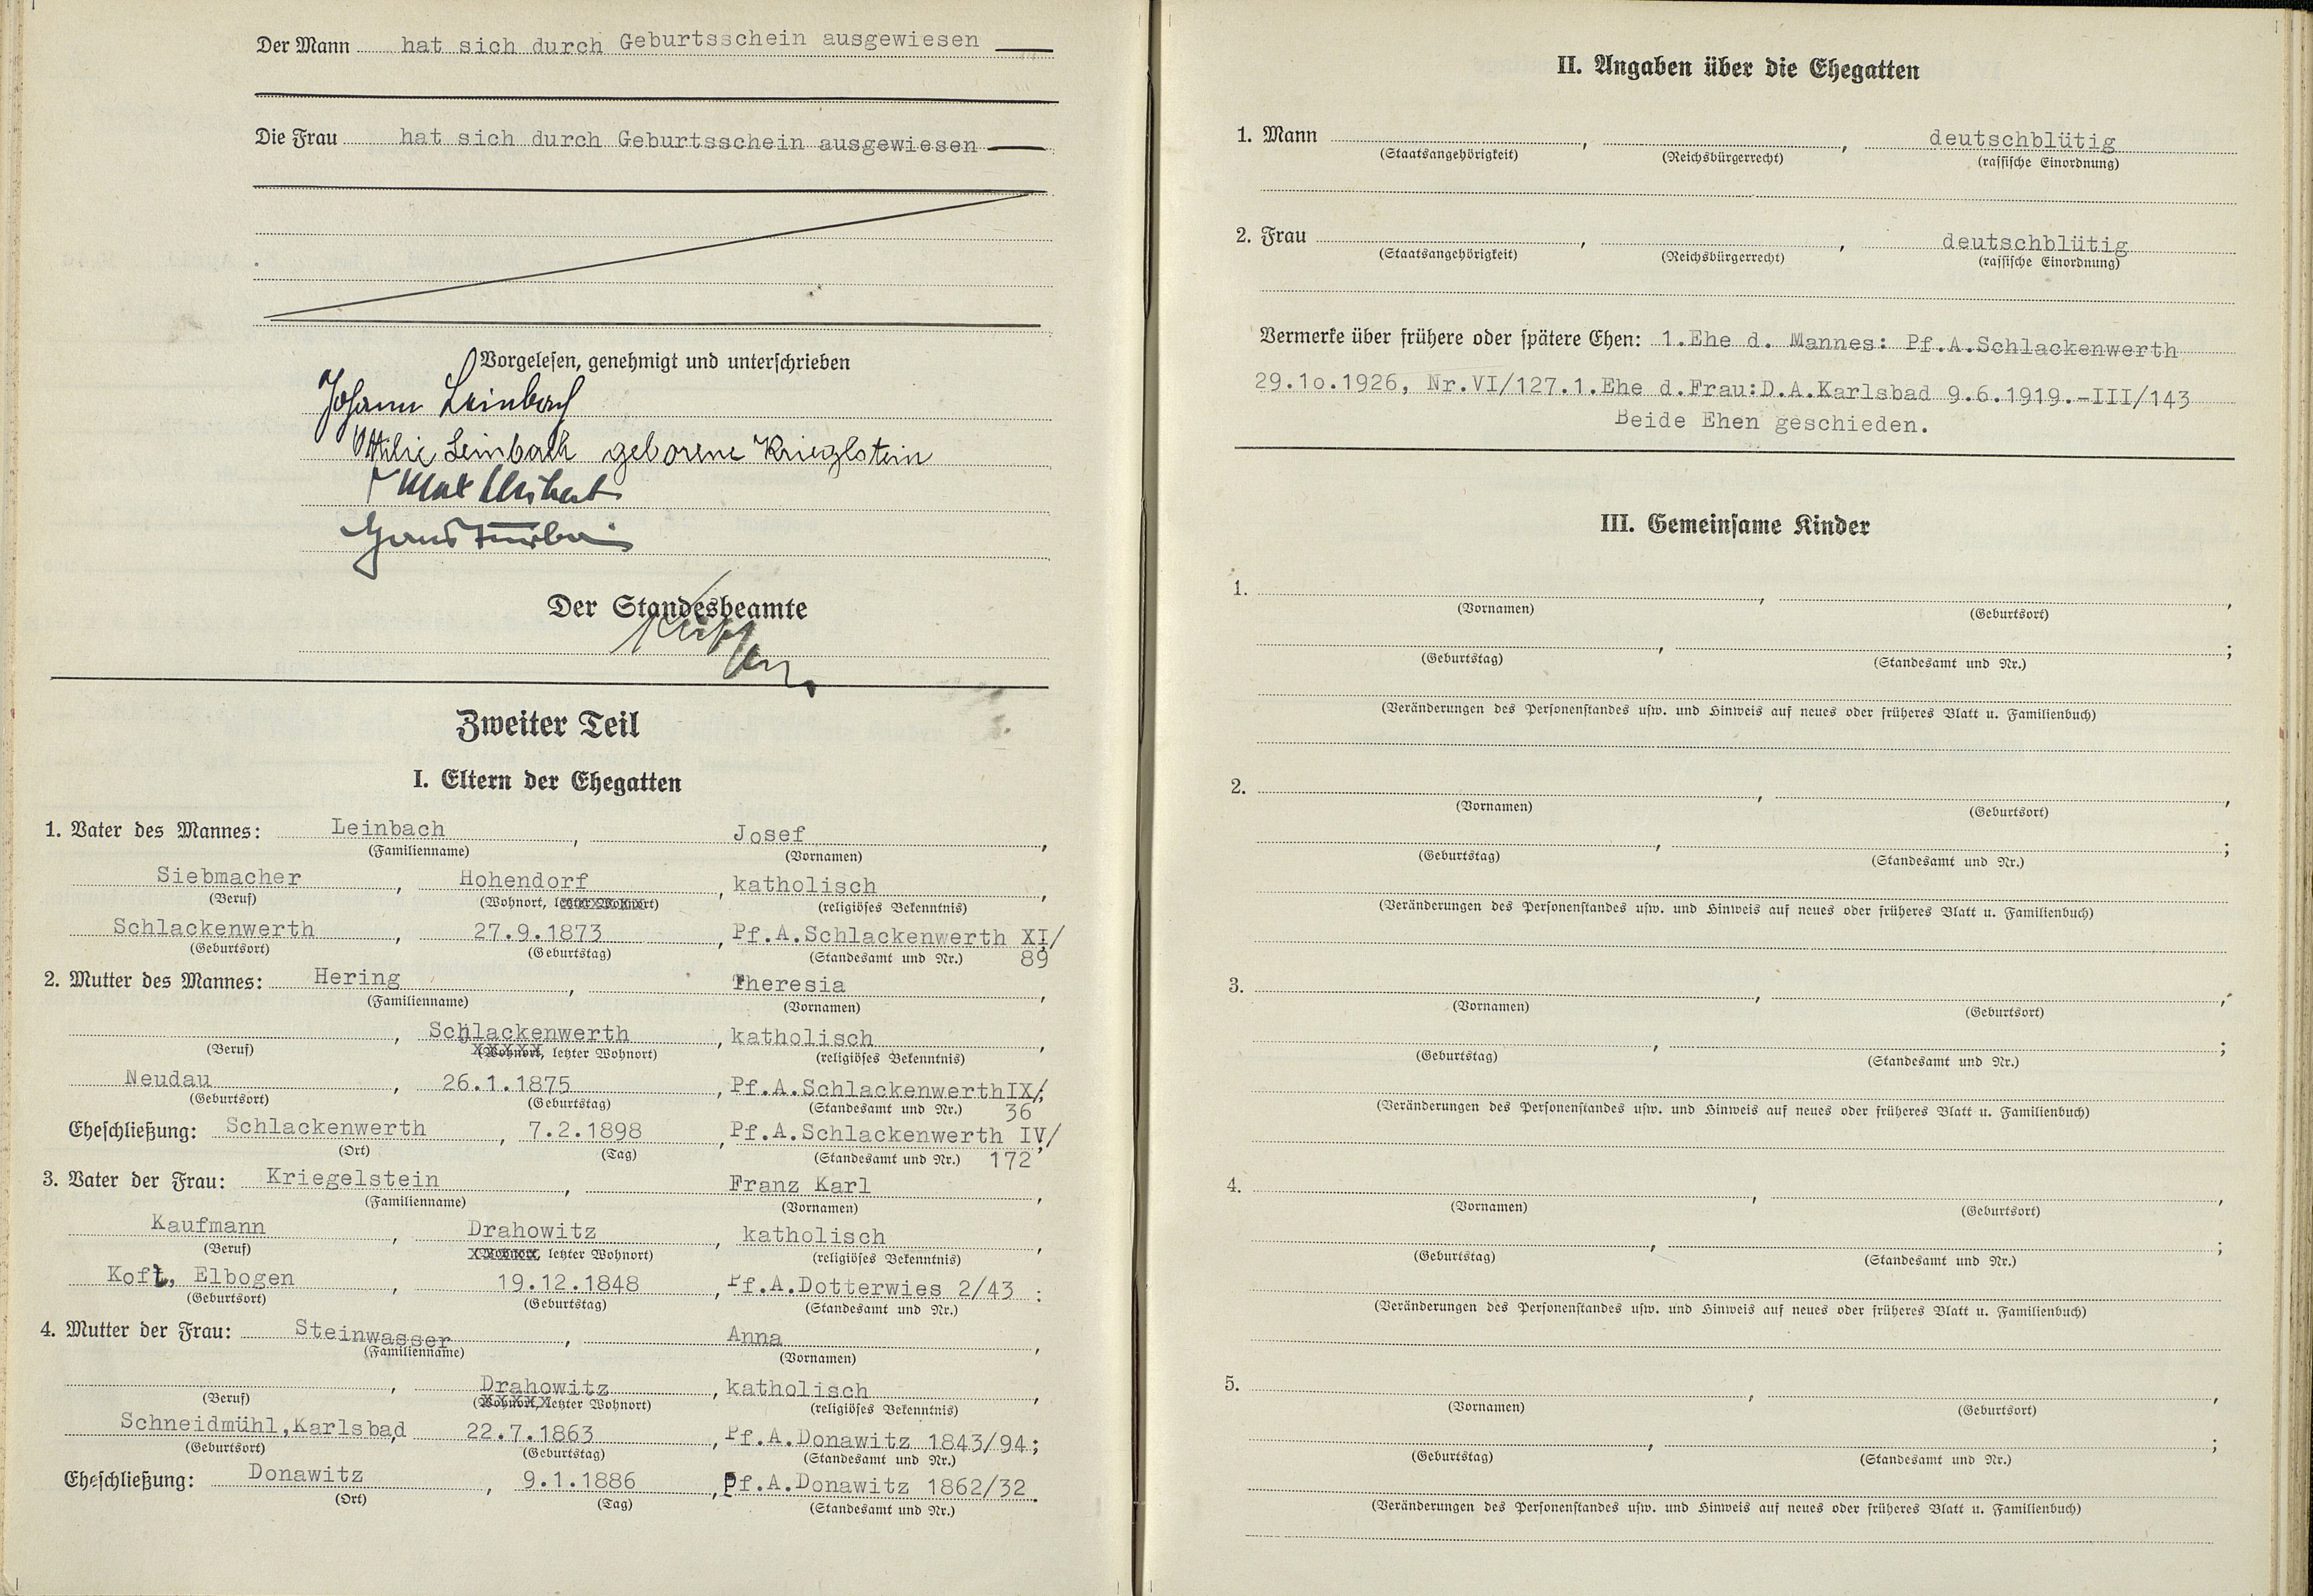 Der Mann hat sich durch Geburtsschein ausgewiesen
Die Frau hat sich durch Geburtsschein ausgewiesen
Vorgelesen, genehmigt und unterschrieben
Johann Leinbach
Ottilie Leinbach geborene Kriegelstein
Max
Hans
Der Standesbeamte
Zweiter Teil
I. Eltern der Ehegatten
1. Vater des Mannes: Leinbach, Josef,
(Familienname) (Vornamen)
Siebmacher, Hohendorf, katholisch,
(Beruf) (Wohnort, letzter Wohnort) (religiöses Bekenntnis)
Schlackenwerth, 27.9.1873, Pf.A.Schlackenwerth XI/
(Geburtsort) (Geburtstag) (Standesamt und Nr.) 89
2. Mutter des Mannes: Hering, Theresia,
(Familienname) (Vornamen)
, Schlackenwerth, katholisch,
(Beruf) (Wohnort, letzter Wohnort) (religiöses Bekenntnis)
Neudau, 26.1.1875, Pf.A.SchlackenwerthIX/;
(Geburtsort) (Geburtstag) (Standesamt und Nr.) 36
Eheschließung: Schlackenwerth, 7.2.1898, Pf.A.Schlackenwerth IV/
(Ort) (Tag) (Standesamt und Nr.) 172
3. Vater der Frau: Kriegelstein, Franz Karl,
(Familienname) (Vornamen)
Kaufmann, Drahowitz, katholisch,
(Beruf) (Wohnort, letzter Wohnort) (religiöses Bekenntnis)
Koft, Elbogen, 19.12.1848, Pf.A.Dotterwies 2/43 ;
(Geburtsort) (Geburtstag) (Standesamt und Nr.)
4. Mutter der Frau: Steinwasser, Anna,
(Familienname) (Vornamen)
, Drahowitz, katholisch,
(Beruf) (Wohnort, letzter Wohnort) (religiöses Bekenntnis)
Schneidmühl,Karlsbad, 22.7.1863, Pf.A.Donawitz 1843/94;
(Geburtsort) (Geburtstag) (Standesamt und Nr.)
Eheschließung: Donawitz, 9.1.1886, Pf.A.Donawitz 1862/32.
(Ort) (Tag) (Standesamt und Nr.)
II. Angaben über die Ehegatten
1. Mann , , deutschblütig
(Staatsangehörigkeit) (Reichsbürgerrecht) (rassische Einordnung)
2. Frau , , deutschblütig
(Staatsangehörigkeit) (Reichsbürgerrecht) (rassische Einordnung)
Vermerke über frühere oder spätere Ehen: 1.Ehe d. Mannes: Pf.A.Schlackenwerth
29.1o.1926, Nr.VI/127.1.Ehe d.Frau:D.A.Karlsbad 9.6.1919.-III/143
Beide Ehen geschieden.
III. Gemeinsame Kinder
1. , ,
(Vornamen) (Geburtsort)
, ;
(Geburtstag) (Standesamt und Nr.)
(Veränderungen des Personenstandes usw. und Hinweis auf neues oder früheres Blatt u. Familienbuch)
2. , ,
(Vornamen) (Geburtsort)
, ;
(Geburtstag) (Standesamt und Nr.)
(Veränderungen des Personenstandes usw. und Hinweis auf neues oder früheres Blatt u. Familienbuch)
3. , ,
(Vornamen) (Geburtsort)
, ;
(Geburtstag) (Standesamt und Nr.)
(Veränderungen des Personenstandes usw. und Hinweis auf neues oder früheres Blatt u. Familienbuch)
4. , ,
(Vornamen) (Geburtsort)
, ;
(Geburtstag) (Standesamt und Nr.)
(Veränderungen des Personenstandes usw. und Hinweis auf neues oder früheres Blatt u. Familienbuch)
5. , ,
(Vornamen) (Geburtsort)
, ;
(Geburtstag) (Standesamt und Nr.)
(Veränderungen des Personenstandes usw. und Hinweis auf neues oder früheres Blatt u. Familienbuch)